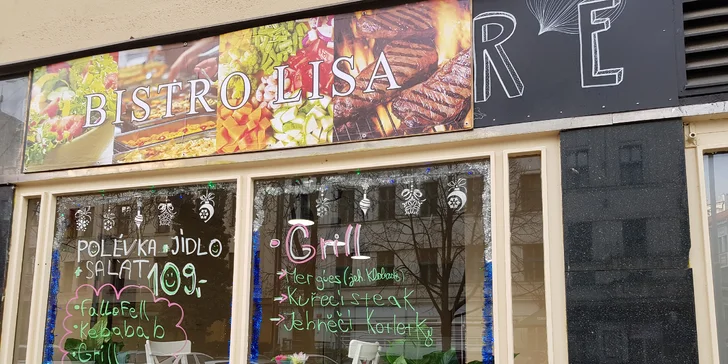 BISTRO LISA
RE
POLÉVKA•JÍDLO
•SALAT 109,-
•fallofell
•Kebabab
•Grill
•Grill
→Mergues (jeh. Klobasky)
→Kuřecí steak
→Jehněčí Kotletky